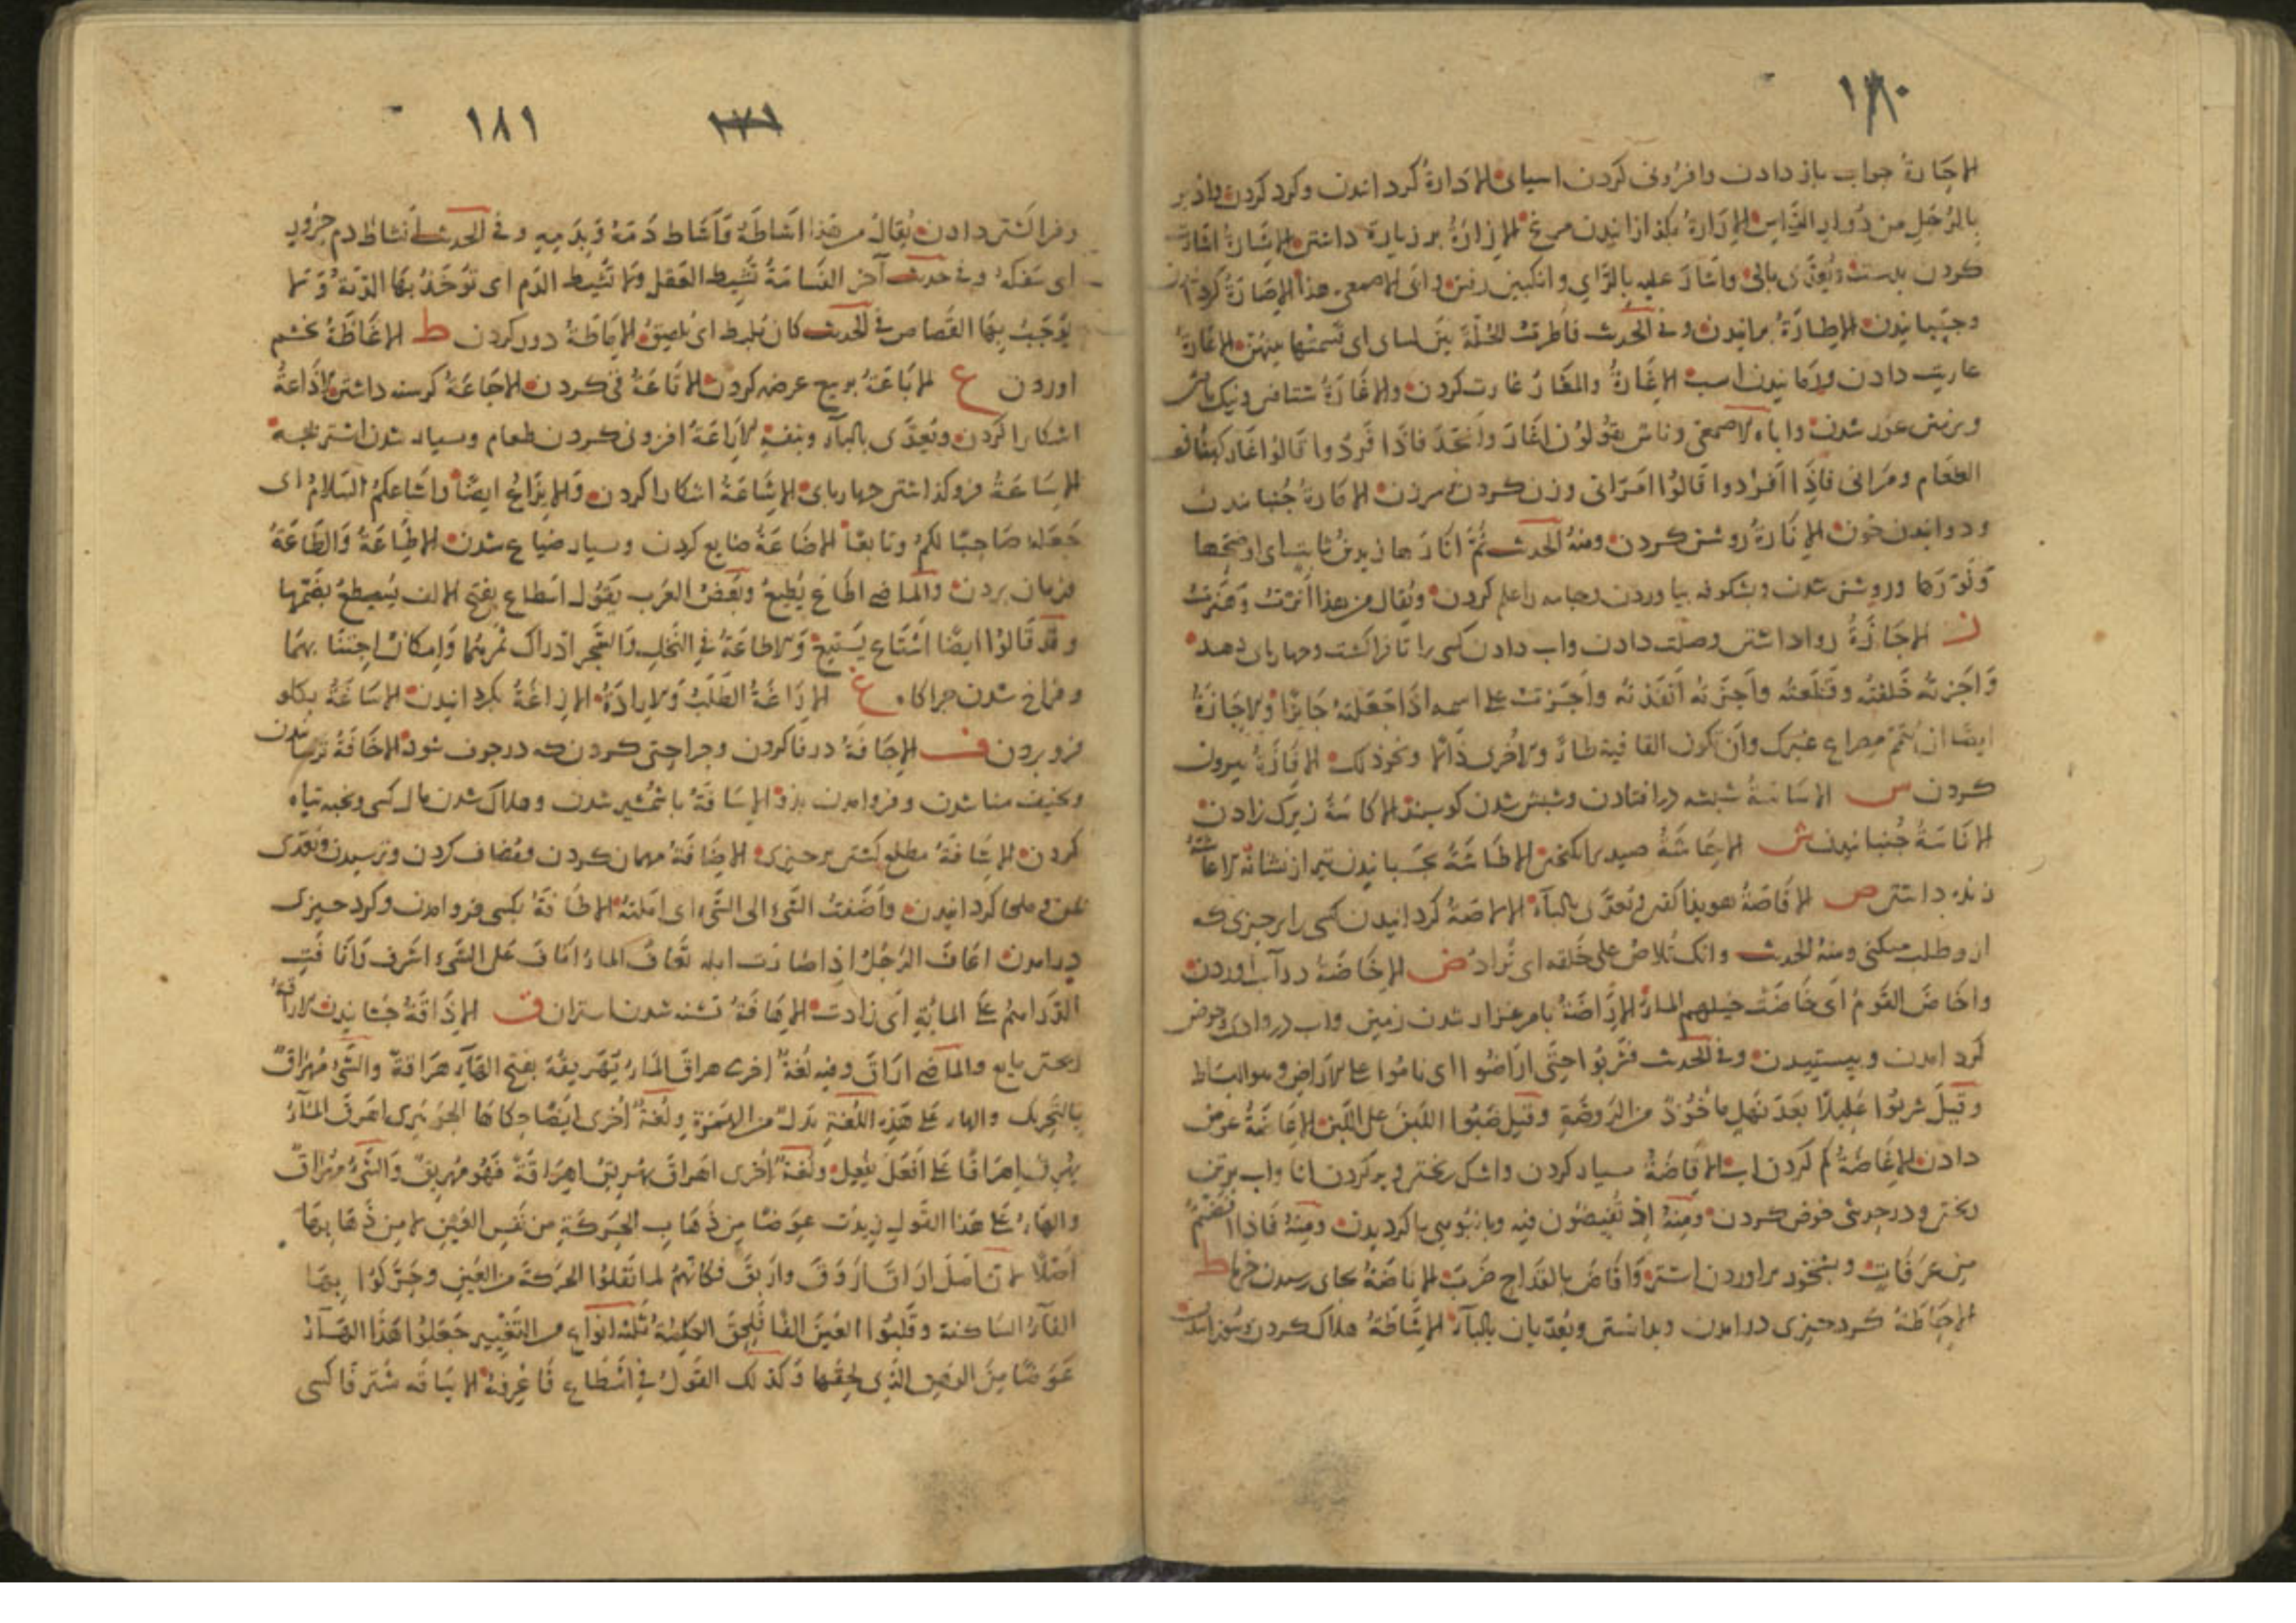 ١٨٠
الإجارة جواب باز دادن وافزونی کردن اسیای الإدارة کرد اندن وکرد کردن وادیر
بالرجل من دوار الرأس الإزارة الإزارة بر زیارة داشتن الإشارة اشارت
کردن بدست ویعدی بالی واشار علیه بالرای وانکبین رفتن وابی الاصمعی هذا الإصارة
وجنبانیدن الإطارة برانیدن وفی الحدیث فاطرت الحلة بین نسای ای قسمتها بینهن الإعارة
عاریت دادن اسب الإغارة والمغار غارت کردن والإغارة شتافتن ونیک
عور شدن واباه الاصمعی وناس یقولون اغار وانجد فاذا افردوا قالوا غار کما قالوا
الطعام ومرانی فاذا افردوا قالوا امرانی وزن کردن الإمارة جنبانیدن
ودوانیدن خون الإنارة روشن کردن ومنه الحدیث ثم انارها زید بن ثابت ای اوضحها
ونورها وروشن شدن وبشکوفه بیاوردن وجامه را علم کردن ویقال من هذا انرت وهنرت
ز الإجازة روا داشتن وصلت دادن واب دادن کسی را تا فرا کشت وچهارپای دهد
واجزته خلفته وقطعته واجزته انفذته واجزت علی اسمه اذا جعلته جایزا والإجازة
ایضا ان تتم مصراع غیرک وان تکون القافیة طاء والاخری دالا ونحو ذلک بیرون
کردن س الإساسة شبشه درافتادن وشبش شدن کوسپند الإکاسة زیرک زادن
الإناسة جنبانیدن ش الإحاشة صید برانکیختن الإطاشة بجسبانیدن تیر از نشانه الإعاشة
زنده داشتن ص الإفاصة هویدا کفتن ویعدی بالباء الإلاصة کردانیدن کسی را بر چیزی که
ازو طلب میکنی ومنه الحدیث وانک تلاص علی خلعه ای تراد ض الإخاضة در آب اوردن
واخاض القوم ای خاضت خیلهم الماء الإراضة با مرغزار شدن زمین واب در وادی وحوض
کرد امدن وبیستیدن وفی الحدیث فشربوا حتی اراضوا ای ناموا علی الاراض وهو البساط
وقیل شربوا عللا بعد نهل ماخوذ من الروضة وقیل صبوا اللبن علی اللبن الإعاضة عوض
دادن الإغاضة کم کردن اب الإفاضة بسیار کردن واشک ریختن وپر کردن انا واب بر تن
ریختن ودر حدیث خوض کردن ومنه اذ تفیضون فیه وبانبوهی باکردیدن ومنه فاذا افضتم
من عرفات وبشخود براوردن اشتر وافاض بالقداح ضرب بجای رسیدن خرما ط
الإحاطة کرد چیزی درامدن وبدانستن ویعدیان بالباء الإشاطة هلاک کردن وسوزانیدن
١٨١ ١٧١
وفرا کشتن دادن یقال من هذا اشاطه واشاط دمه وبدمه وفی الحدیث اشاط دم جزور
ای سفکه وفی حدیث آخر القسامة تشیط العقل ولا تشیط الدم ای توخذ بها الدیة ولا
یوجب بها القصاص فی الحدیث کان یلیط ای یلصق الإماطة دور کردن ظ الإغاظة بخشم
اوردن ع الإباعة بر بیع عرضه کردن الإتاعة قی کردن الإجاعة کرسنه داشتن الإذاعة
اشکارا کردن ویعدی بالباء وبنفسه الإراعة افزونی کردن طعام وبسیار شدن اشتر بچه
الإساعة فرو کذاشتن چهارپای الإشاعة اشکارا کردن والإیزاع ایضا واشاعکم السلام ای
جعله صاحبا لکم وتابعا الإضاعة ضایع کردن وبسیار ضیاع شدن الإطاعة والطاعة
فرمان بردن والماضی اطاع یطیع وبعض العرب یقول اسطاع بفتح الالف یسطیع بضمها
وقد قالوا ایضا استاع یستیع والإطاعة فی النخل والشجر ادراک ثمرتهما وامکان اجتنا بهما
وفراخ شدن چراکاه غ الإراغة الطلب والإرادة الإزاغة بکردانیدن الإساغة بکلو
فرو بردن ف الإجافة در فا کردن وجراحتی کردن که در جوف شود الإخافة ترسانیدن
وبخیف منا شدن وفروامدن بدو الإسافة با شمشیر شدن وهلاک شدن مال کسی وبچه تباه
کردن الإشافة مطلع کشتن بر چیزی الإضافة مهمان کردن ومضاف کردن وترسیدن وتعدی
بمن وملجا کردانیدن واضفت الشیء الی الشیء ای املته الإطافة بکسی فروامدن وکرد چیزی
درامدن اعاف الرجل اذا صارت ابله تعاف الماء اناف علی الشیء اشرف وانافت
الدراهم علی المائة ای زادت الإهافة تشنه شدن استران ق الإذاقة چشانیدن الإراقة
ریختن مایع والماضی اراق وفیه لغة اخری هراق الماء یهریقه بفتح الهاء هراقة والشیء مهراق
بالتحریک والهاء علی هذه اللغة بدل من الهمزة ولغة اخری ایضا حکاها الجوهری اهرق الماء
یهرق اهراقا علی افعل یفعل ولغة اخری اهراق یهریق اهراقة فهو مهریق والشیء مهراق
والهاء علی هذا القول زیدت عوضا من ذهاب الحرکة من نفس العین لا من ذهابها
اصلا لان اصل اراق اروق واریق فکانهم لما نقلوا الحرکة من العین وحرکوا بها
الفاء الساکنة وقلبوا العین الفا فلحق الکلمة ثلثة انواع من التغییر جعلوا هذا الهاء
عوضا من الوهن الذی لحقها وکذلک القول فی اسطاع فاعرفه الإساقة شتر فا کسی